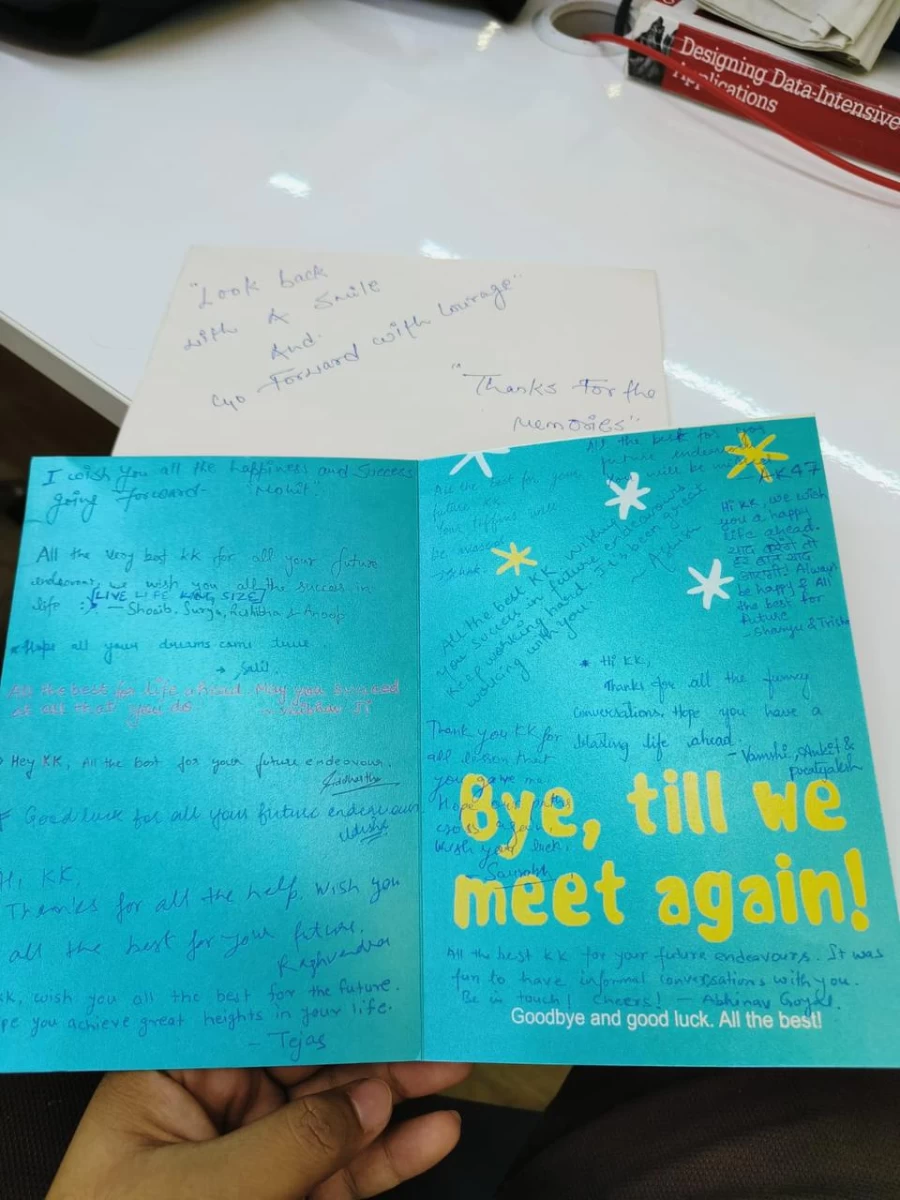 Designing Data-Intensive
Applications
"Look back
with A Smile
And
Go Forward with Courage"
"Thanks For the
Memories"
I wish You all the happiness and Success
going Forward- "Mohit".
All the very best kk for all your future
endeavour, we wish you all the success in
life :) LIVE LIFE KING SIZE
— Shoaib, Surya, & Anoop
Hope all your dreams come true
→ Salil
All the best for life ahead. May you succeed
at all that you do.
Hey KK, All the best for your future endeavour.
Siddhartha
Good luck for all your future endeavour
Hi, KK,
Thanks for all the help. Wish you
all the best for your future.
Raghvendra
kk, wish you all the best for the future.
Hope you achieve great heights in your life.
- Tejas
All the best for your
future endeavours
You will be missed
- AK47
All the best for your
future KK.
Your tiffins will
be missed
All the best KK wishing
your success in future endeavours
Keep working hard. It's been great
working with you.
Hi KK, we wish
you a happy
life ahead.
याद
हर
Always
be happy & All
the best for
future
- Shanyu & Trisha
* Hi KK,
Thanks for all the funny
conversations. Hope you have a
blasting life ahead.
- Vamshi, Ankit &
Thank you KK for
all lesson that
you gave me.
Hope our paths
cross again.
Wish you luck.
- Saurabh
Bye, till we
meet again!
All the best KK for your future endeavours. It was
fun to have informal conversations with you.
Be in touch! Cheers! — Abhinav Goyal.
Goodbye and good luck. All the best!